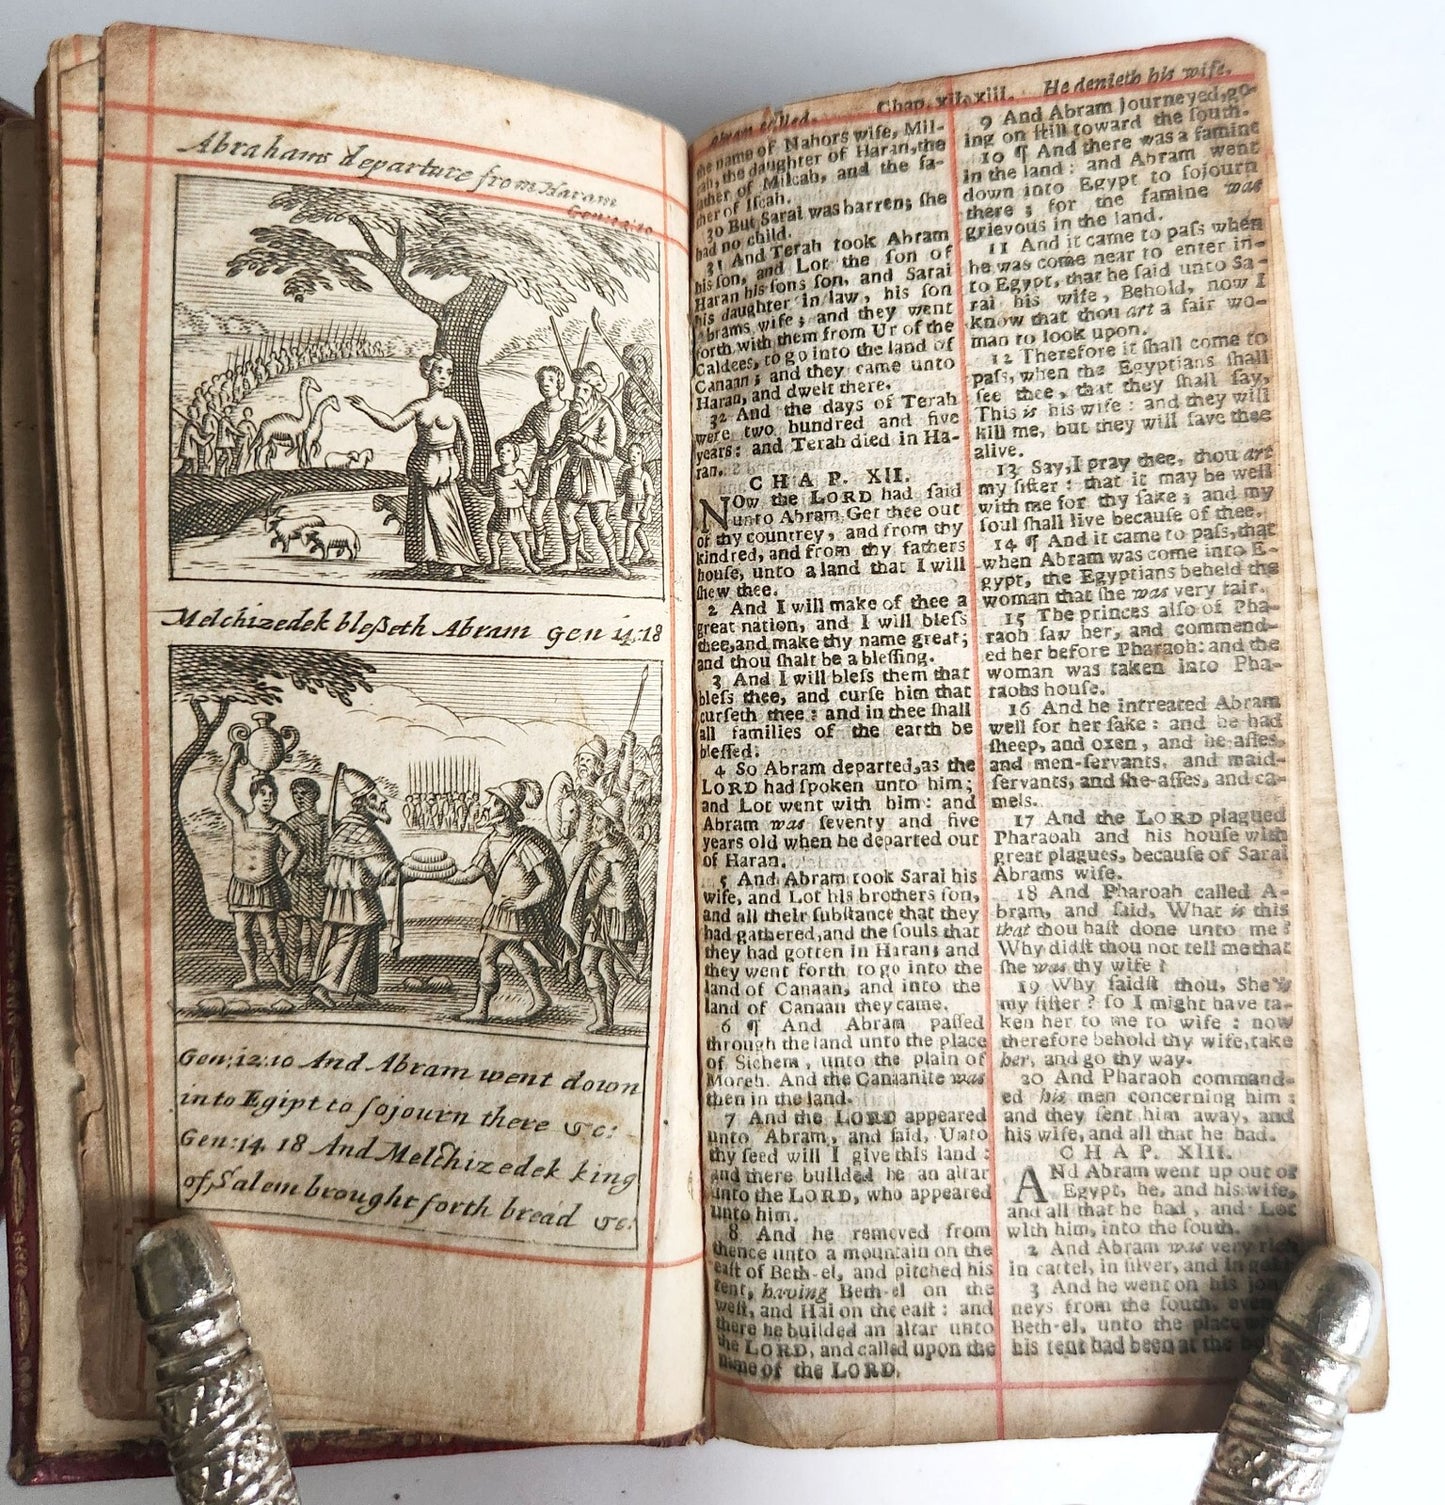 Abrahams departure from Harane
Gen: 12: 10
Melchizedek bleſseth Abram gen 14:18
Gen: 12: 10 And Abram went down
into Egipt to ſojourn there &c:
Gen: 14. 18 And Melchizedek king
of Salem brought forth bread &c:
Abram called. Chap. xii, xiii. He denieth his wife.
the name of Nahors wife, Mil-
cah, the daughter of Haran, the
father of Milcah, and the fa-
ther of Iſcah.
30 But Sarai was barren; ſhe
had no child.
31 And Terah took Abram
his ſon, and Lot the ſon of
Haran his ſons ſon, and Sarai
his daughter in law, his ſon
Abrams wife; and they went
forth with them from Ur of the
Caldees, to go into the land of
Canaan; and they came unto
Haran, and dwelt there.
32 And the days of Terah
were two hundred and five
years: and Terah died in Ha-
ran.
CHAP. XII.
NOw the LORD had ſaid
unto Abram, Get thee out
of thy countrey, and from thy
kindred, and from thy fathers
houſe, unto a land that I will
ſhew thee.
2 And I will make of thee a
great nation, and I will bleſs
thee, and make thy name great;
and thou ſhalt be a bleſſing.
3 And I will bleſs them that
bleſs thee, and curſe him that
curſeth thee: and in thee ſhall
all families of the earth be
bleſſed.
4 So Abram departed, as the
LORD had ſpoken unto him;
and Lot went with him: and
Abram was ſeventy and five
years old when he departed out
of Haran.
5 And Abram took Sarai his
wife, and Lot his brothers ſon,
and all their ſubſtance that they
had gathered, and the ſouls that
they had gotten in Haran; and
they went forth to go into the
land of Canaan, and into the
land of Canaan they came.
6 ¶ And Abram paſſed
through the land unto the place
of Sichem, unto the plain of
Moreh. And the Canaanite was
then in the land.
7 And the LORD appeared
unto Abram, and ſaid, Unto
thy ſeed will I give this land:
and there builded he an altar
unto the LORD, who appeared
unto him.
8 And he removed from
thence unto a mountain on the
eaſt of Beth-el, and pitched his
tent, having Beth-el on the
weſt, and Hai on the eaſt: and
there he builded an altar unto
the LORD, and called upon the
name of the LORD.
9 And Abram journeyed, go-
ing on ſtill toward the ſouth.
10 ¶ And there was a famine
in the land: and Abram went
down into Egypt to ſojourn
there; for the famine was
grievous in the land.
11 And it came to paſs when
he was come near to enter in-
to Egypt, that he ſaid unto Sa-
rai his wife, Behold, now I
know that thou art a fair wo-
man to look upon.
12 Therefore it ſhall come to
paſs, when the Egyptians ſhall
ſee thee, that they ſhall ſay,
This is his wife: and they will
kill me, but they will ſave thee
alive.
13 Say, I pray thee, thou art
my ſiſter: that it may be well
with me for thy ſake; and my
ſoul ſhall live becauſe of thee.
14 ¶ And it came to paſs, that
when Abram was come into E-
gypt, the Egyptians beheld the
woman that ſhe was very fair.
15 The princes alſo of Pha-
raoh ſaw her, and commend-
ed her before Pharaoh: and the
woman was taken into Pha-
raohs houſe.
16 And he intreated Abram
well for her ſake: and he had
ſheep, and oxen, and he-aſſes,
and men-ſervants, and maid-
ſervants, and ſhe-aſſes, and ca-
mels.
17 And the LORD plagued
Pharaoah and his houſe with
great plagues, becauſe of Sarai
Abrams wife.
18 And Pharoah called A-
bram, and ſaid, What is this
that thou haſt done unto me?
Why didſt thou not tell me that
ſhe was thy wife?
19 Why ſaidſt thou, She is
my ſiſter? ſo I might have ta-
ken her to me to wife: now
therefore behold thy wife, take
her, and go thy way.
20 And Pharaoh command-
ed his men concerning him:
and they ſent him away, and
his wife, and all that he had.
CHAP. XIII.
ANd Abram went up out of
Egypt, he, and his wife,
and all that he had, and Lot
with him, into the ſouth.
2 And Abram was very rich
in cattel, in ſilver, and in gold.
3 And he went on his jour-
neys from the ſouth, even
Beth-el, unto the place
his tent had been at the